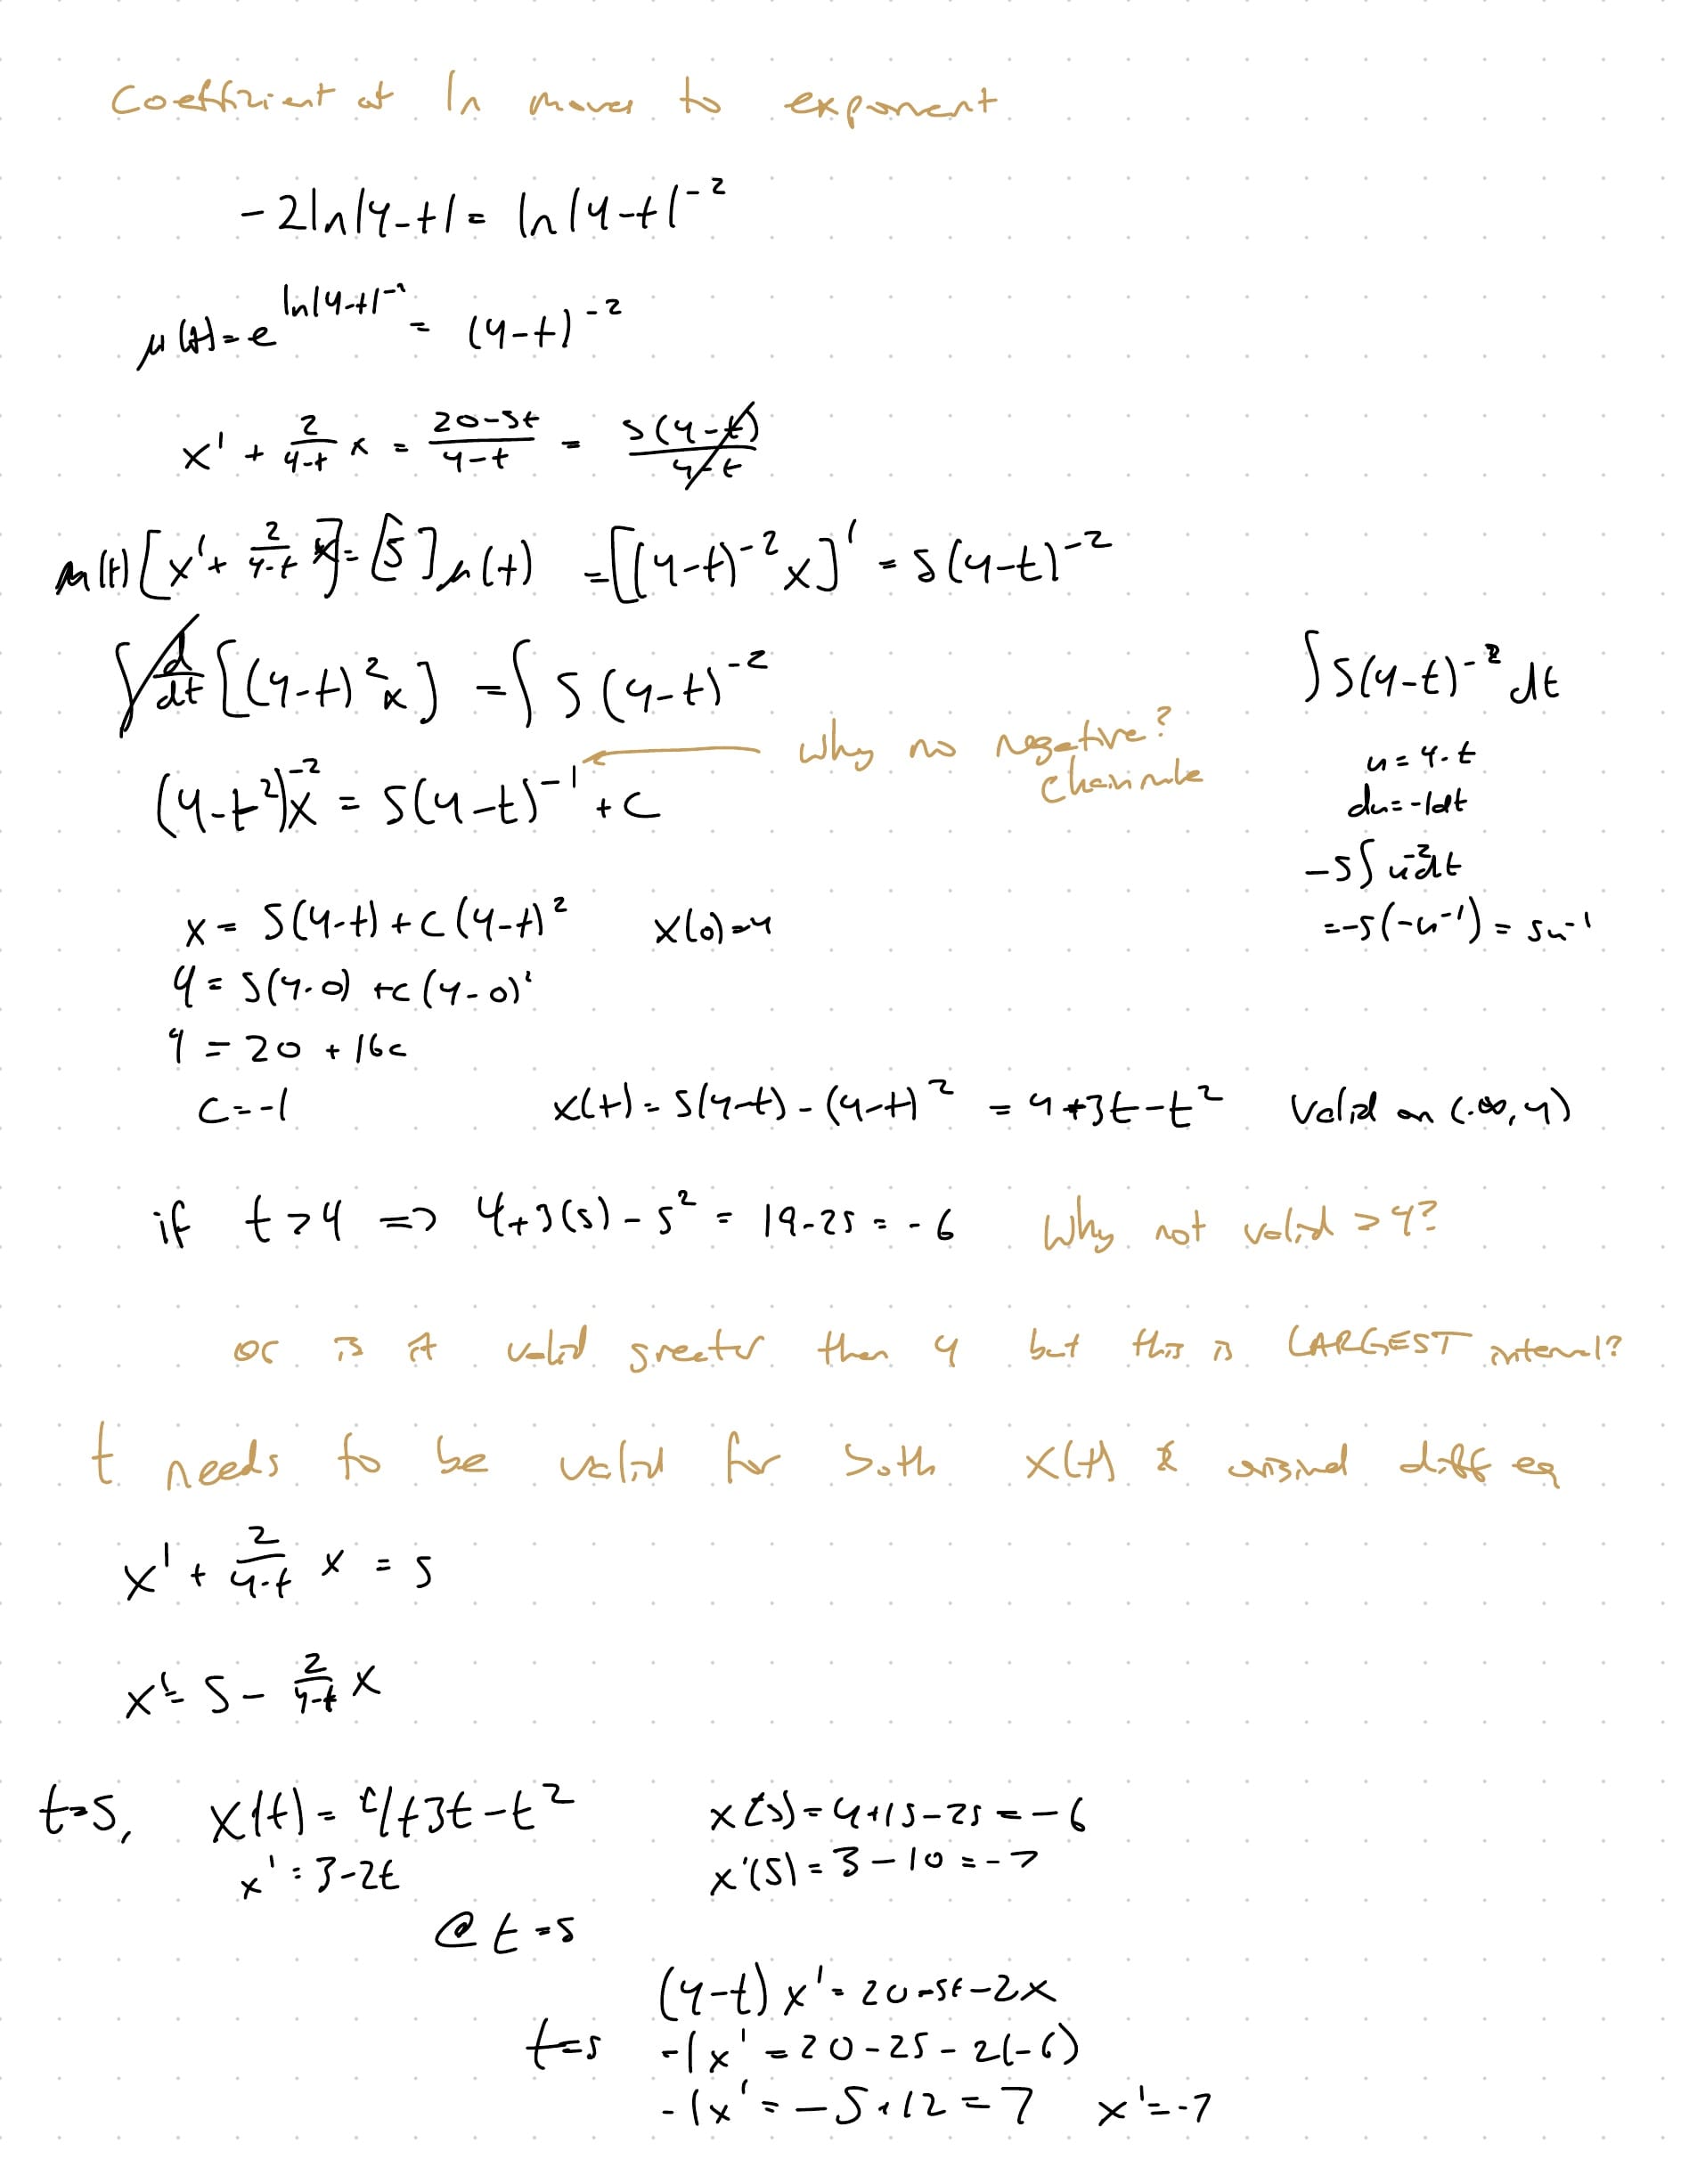 Coefficient of ln moves to exponent
-2ln|4-t| = ln|4-t|^-2
μ(t) = e^ln|4-t|^-2 = (4-t)^-2
x' + 2/(4-t) x = (20-5t)/(4-t) = 5(4-t)/(4-t)
μ(t)[x' + 2/(4-t) x] = [5]μ(t) = [(4-t)^-2 x]' = 5(4-t)^-2
∫ d/dt [(4-t)^2 x] = ∫ 5(4-t)^-2
∫5(4-t)^-2 dt
Why no negative?
chain rule
u = 4-t
du = -1dt
-5∫u^-2 dt
= -5(-u^-1) = 5u^-1
(4-t^2)^-2 x = 5(4-t)^-1 + C
x = 5(4-t) + C(4-t)^2 x(0)=4
4 = 5(4-0) + C(4-0)^2
4 = 20 + 16C
C = -1 x(t) = 5(4-t) - (4-t)^2 = 4+3t-t^2 Valid on (-∞, 4)
if t>4 => 4+3(5)-5^2 = 19-25 = -6 Why not valid >4?
or is it valid greater then 4 but this is LARGEST interval?
t needs to be valid for both x(t) & original diff eq
x' + 2/(4-t) x = 5
x' = 5 - 2/(4-t) x
t=5, x(t) = 4+3t-t^2 x(5) = 4+15-25 = -6
x' = 3-2t x'(5) = 3-10 = -7
@ t=5
(4-t)x' = 20-5t-2x
t=5 -1x' = 20-25-2(-6)
-1x' = -5+12 = 7 x' = -7